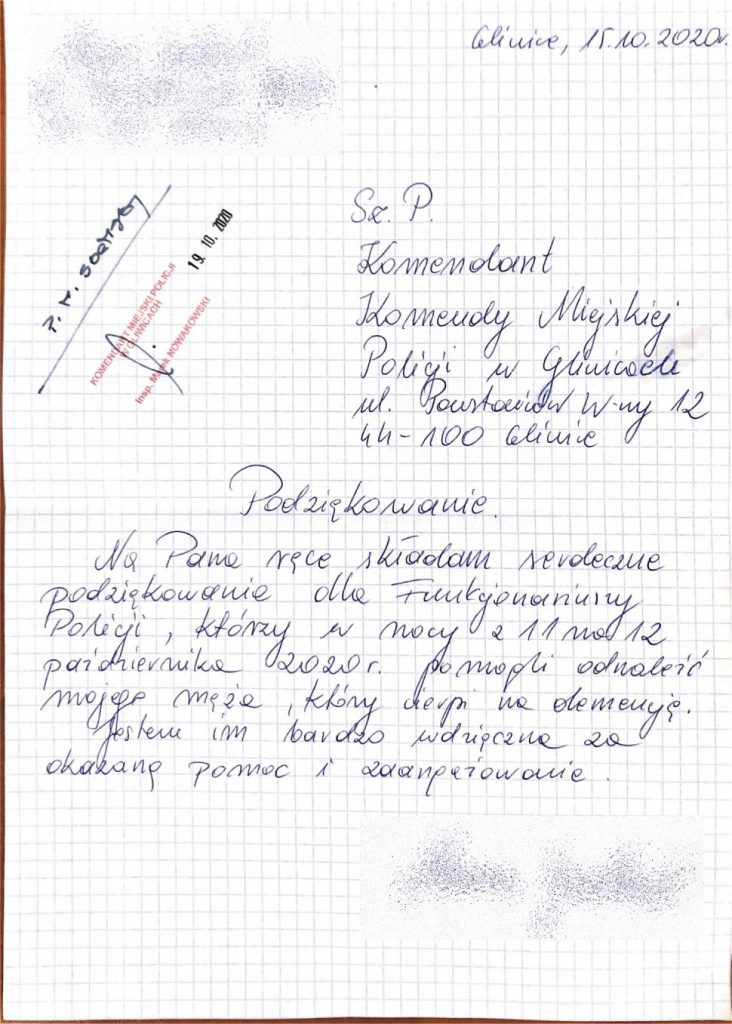 Gliwice, 15.10.2020r.
19. 10. 2020
KOMENDANT MIEJSKI POLICJI
W GLIWICACH
insp. Marek NOWAKOWSKI
Sz. P.
Komendant
Komendy Miejskiej
Policji w Gliwicach
ul. Powstańców W-wy 12
44-100 Gliwice
Podziękowanie.
Na Pana ręce składam serdeczne
podziękowania dla Funkcjonariuszy
Policji, którzy w nocy z 11 na 12
października 2020r. pomogli odnaleźć
mojego męża, który cierpi na demencję.
Jestem im bardzo wdzięczna za
okazaną pomoc i zaangażowanie.